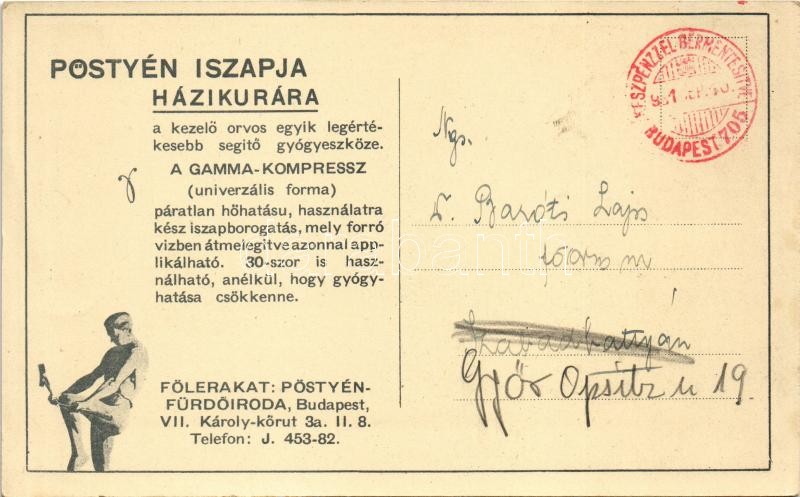 PÖSTYÉN ISZAPJA
HÁZIKURÁRA
a kezelő orvos egyik legérté-
kesebb segitő gyógyeszköze.
A GAMMA-KOMPRESSZ
(univerzális forma)
páratlan hőhatásu, használatra
kész iszapborogatás, mely forró
vizben átmelegitve azonnal app-
likálható. 30-szor is hasz-
nálható, anélkül, hogy gyógy-
hatása csökkenne.
FŐLERAKAT: PÖSTYÉN-
FÜRDŐIRODA, Budapest,
VII. Károly-kőrut 3a. II. 8.
Telefon: J. 453-82.
KÉSZPÉNZZEL BÉRMENTESITVE
BUDAPEST 705
Ngs.
Dr. Baróti Lajs
főorvos úr
Szabadbattyán
Győr Opsitz u 19.